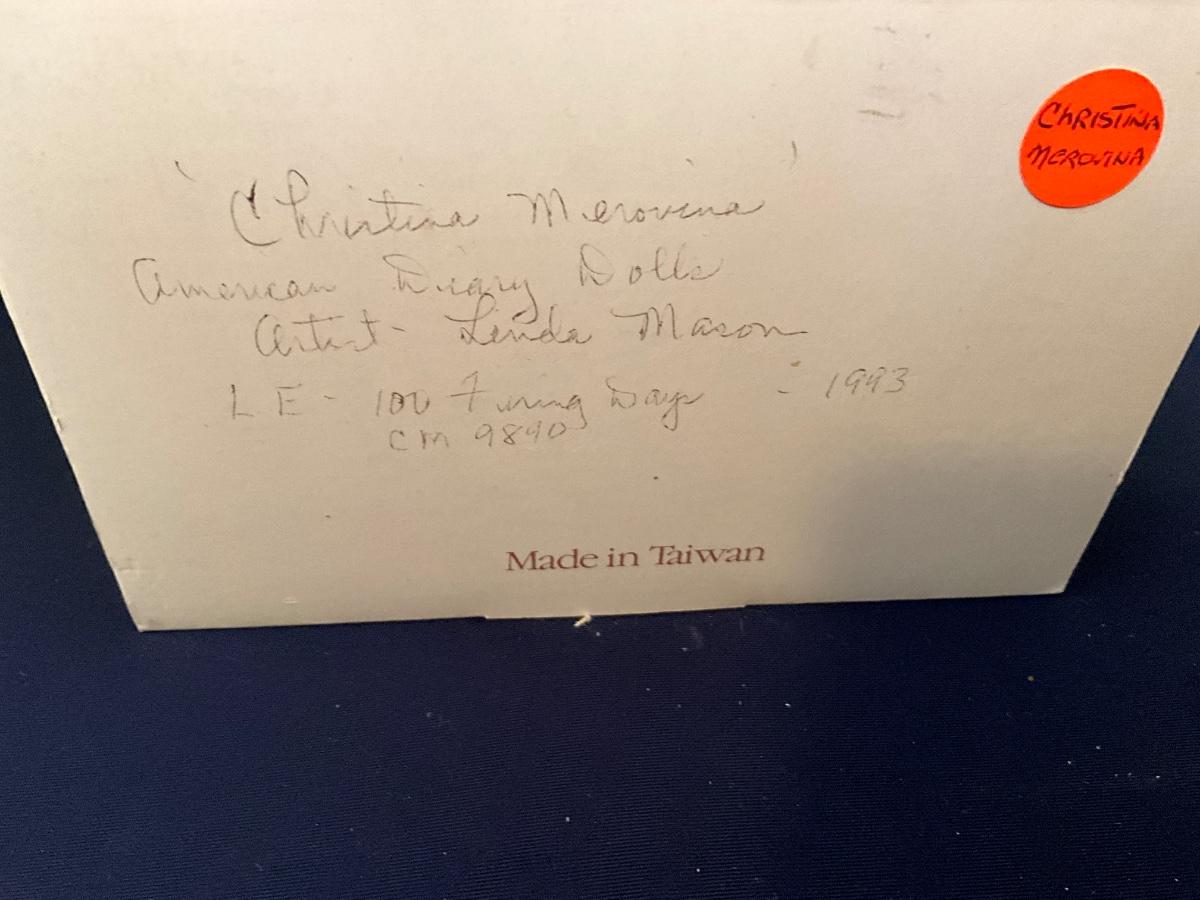 CHRISTINA
MEROVINA
'Christina Merovina'
American Diary Dolls
Artist - Linda Mason
LE - 100 Firing Days - 1993
CM 9840
Made in Taiwan